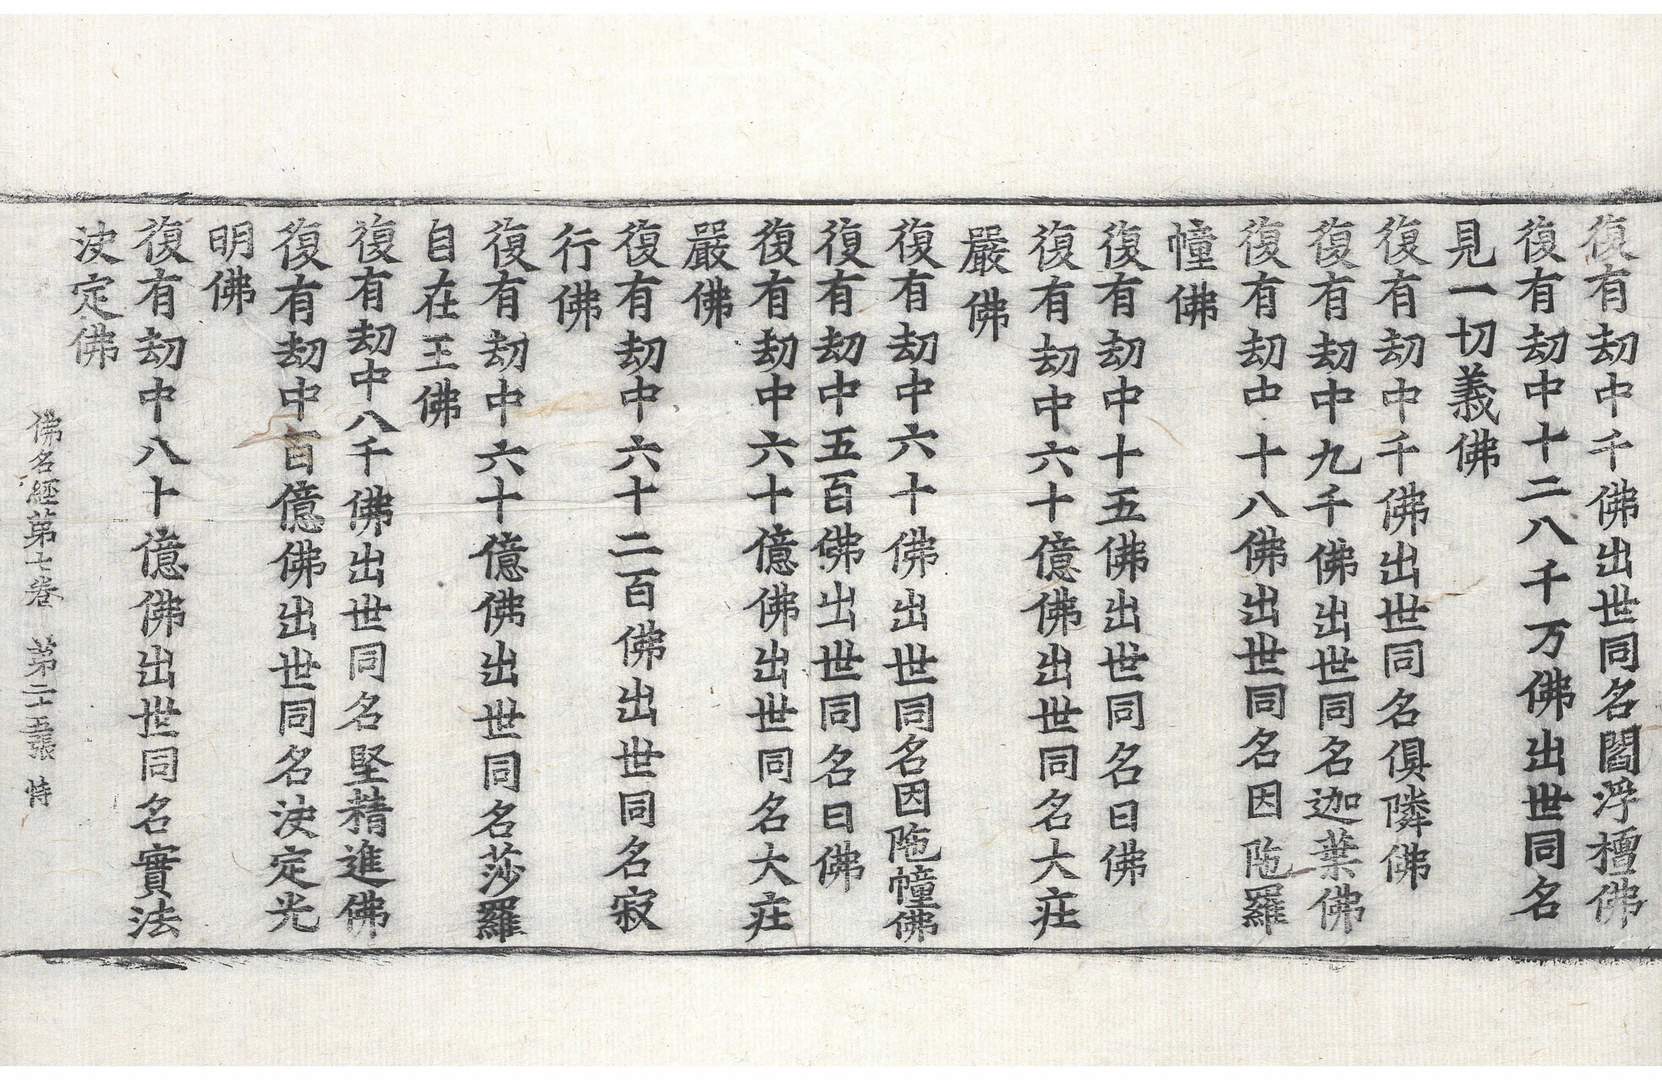 復有劫中千佛出世同名閻浮檀佛
復有劫中十二八千万佛出世同名
見一切義佛
復有劫中千佛出世同名俱隣佛
復有劫中九千佛出世同名迦葉佛
復有劫中十八佛出世同名因陁羅
幢佛
復有劫中十五佛出世同名日佛
復有劫中六十億佛出世同名大莊
嚴佛
復有劫中六十佛出世同名因陁幢佛
復有劫中五百佛出世同名日佛
復有劫中六十億佛出世同名大莊
嚴佛
復有劫中六十二百佛出世同名寂
行佛
復有劫中六十億佛出世同名莎羅
自在王佛
復有劫中八千佛出世同名堅精進佛
復有劫中百億佛出世同名決定光
明佛
復有劫中八十億佛出世同名實法
決定佛
佛名經第七卷 第二十五張 恃